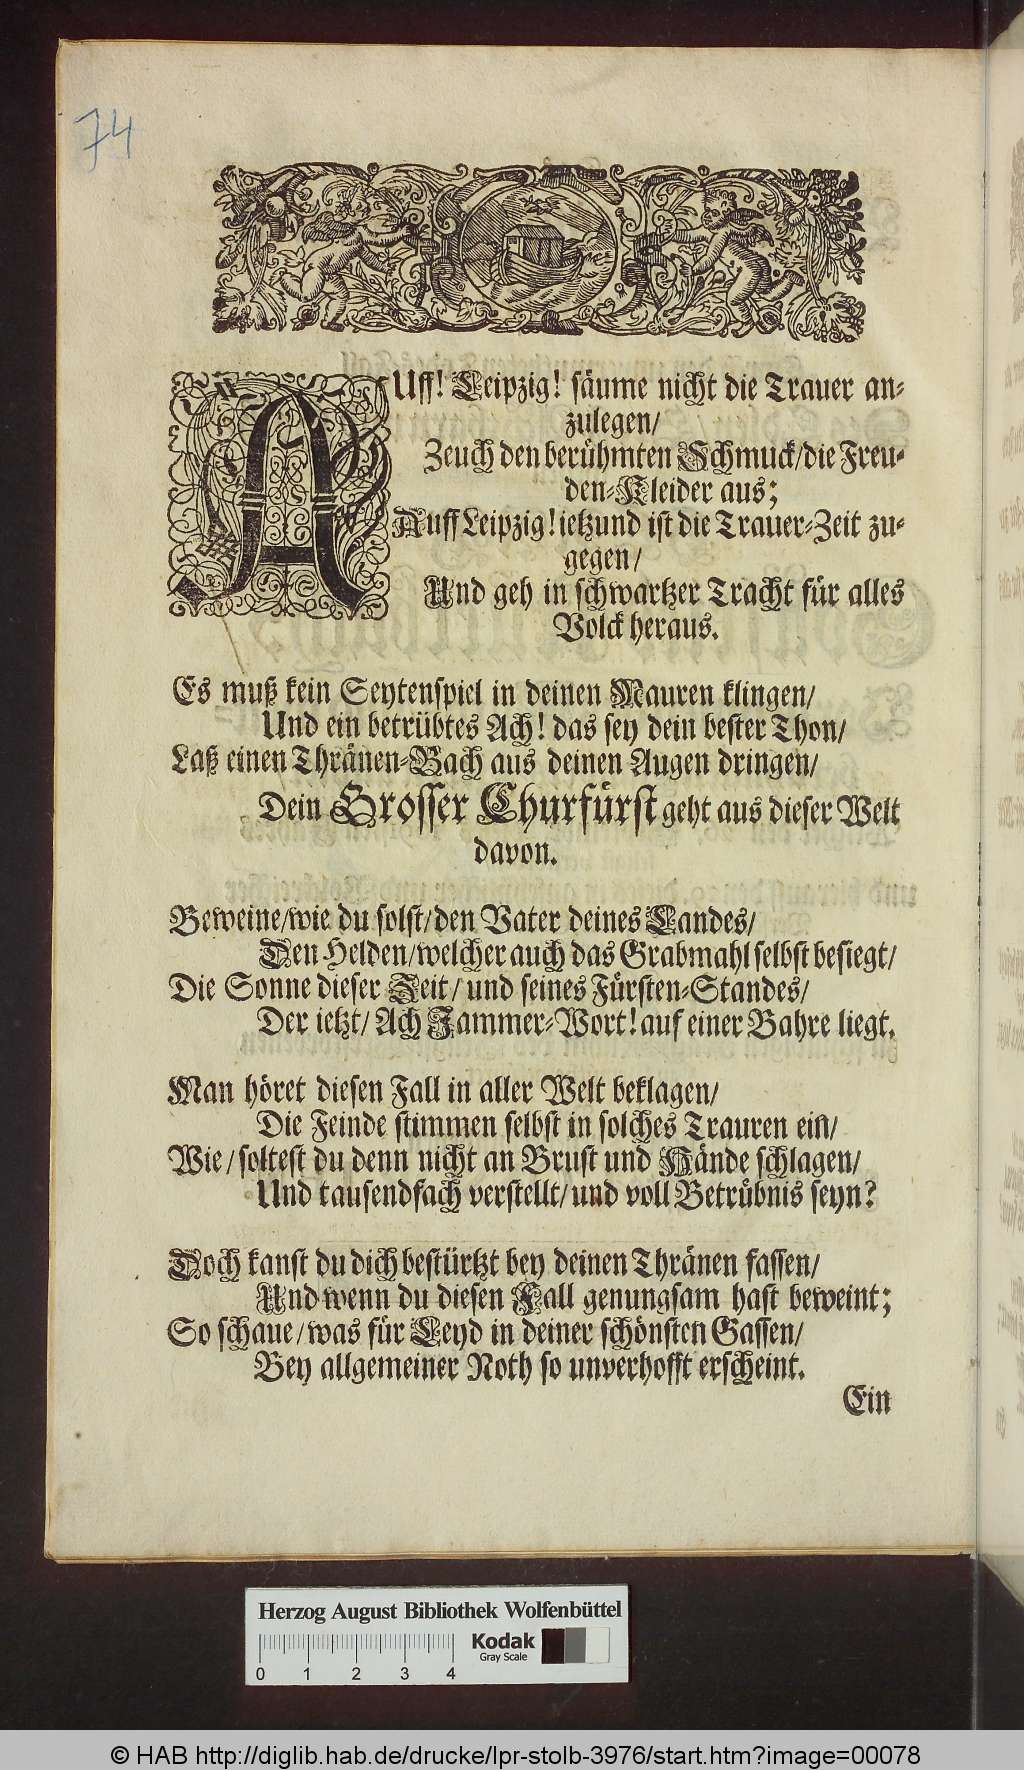 74
AUff! Leipzig! säume nicht die Trauer an-
zulegen/
Zeuch den berühmten Schmuck/die Freu-
den-Kleider aus;
Auff Leipzig! ietzund ist die Trauer-Zeit zu-
gegen/
Und geh in schwartzer Tracht für alles
Volck heraus.
Es muß kein Seytenspiel in deinen Mauren klingen/
Und ein betrübtes Ach! das sey dein bester Thon/
Laß einen Thränen-Bach aus deinen Augen dringen/
Dein Grosser Churfürst geht aus dieser Welt
davon.
Beweine/wie du solst/den Vater deines Landes/
Den Helden/welcher auch das Grabmahl selbst besiegt/
Die Sonne dieser Zeit/ und seines Fürsten-Standes/
Der ietzt/ Ach Jammer-Wort! auf einer Bahre liegt.
Man höret diesen Fall in aller Welt beklagen/
Die Feinde stimmen selbst in solches Trauren ein/
Wie/soltest du denn nicht an Brust und Hände schlagen/
Und tausendfach verstellt/und voll Betrübnis seyn?
Doch kanst du dich bestürtzt bey deinen Thränen fassen/
Und wenn du diesen Fall genungsam hast beweint;
So schaue/was für Leyd in deiner schönsten Gassen/
Bey allgemeiner Noth so unverhofft erscheint.
Ein
Herzog August Bibliothek Wolfenbüttel
Kodak
Gray Scale
0 1 2 3 4
© HAB http://diglib.hab.de/drucke/lpr-stolb-3976/start.htm?image=00078